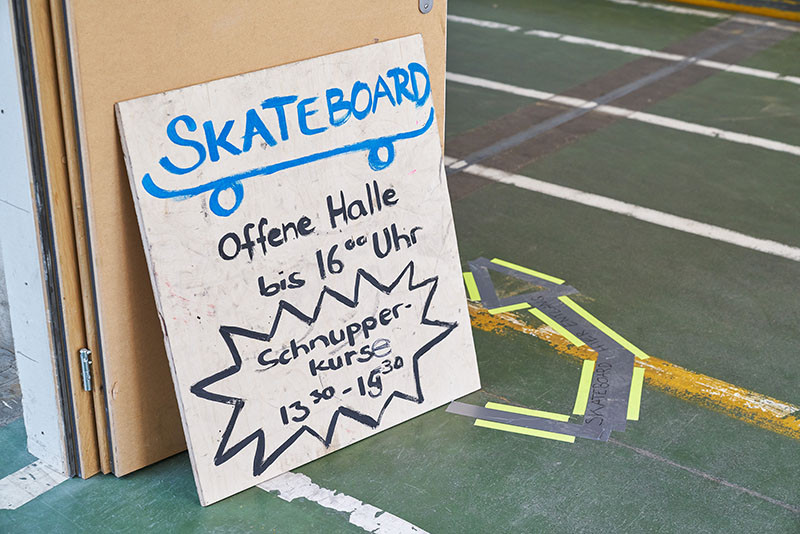 SKATEBOARD
Offene Halle
bis 16⁰⁰ Uhr
Schnupper-
kurse
13³⁰ - 15³⁰
SKATEBOARD